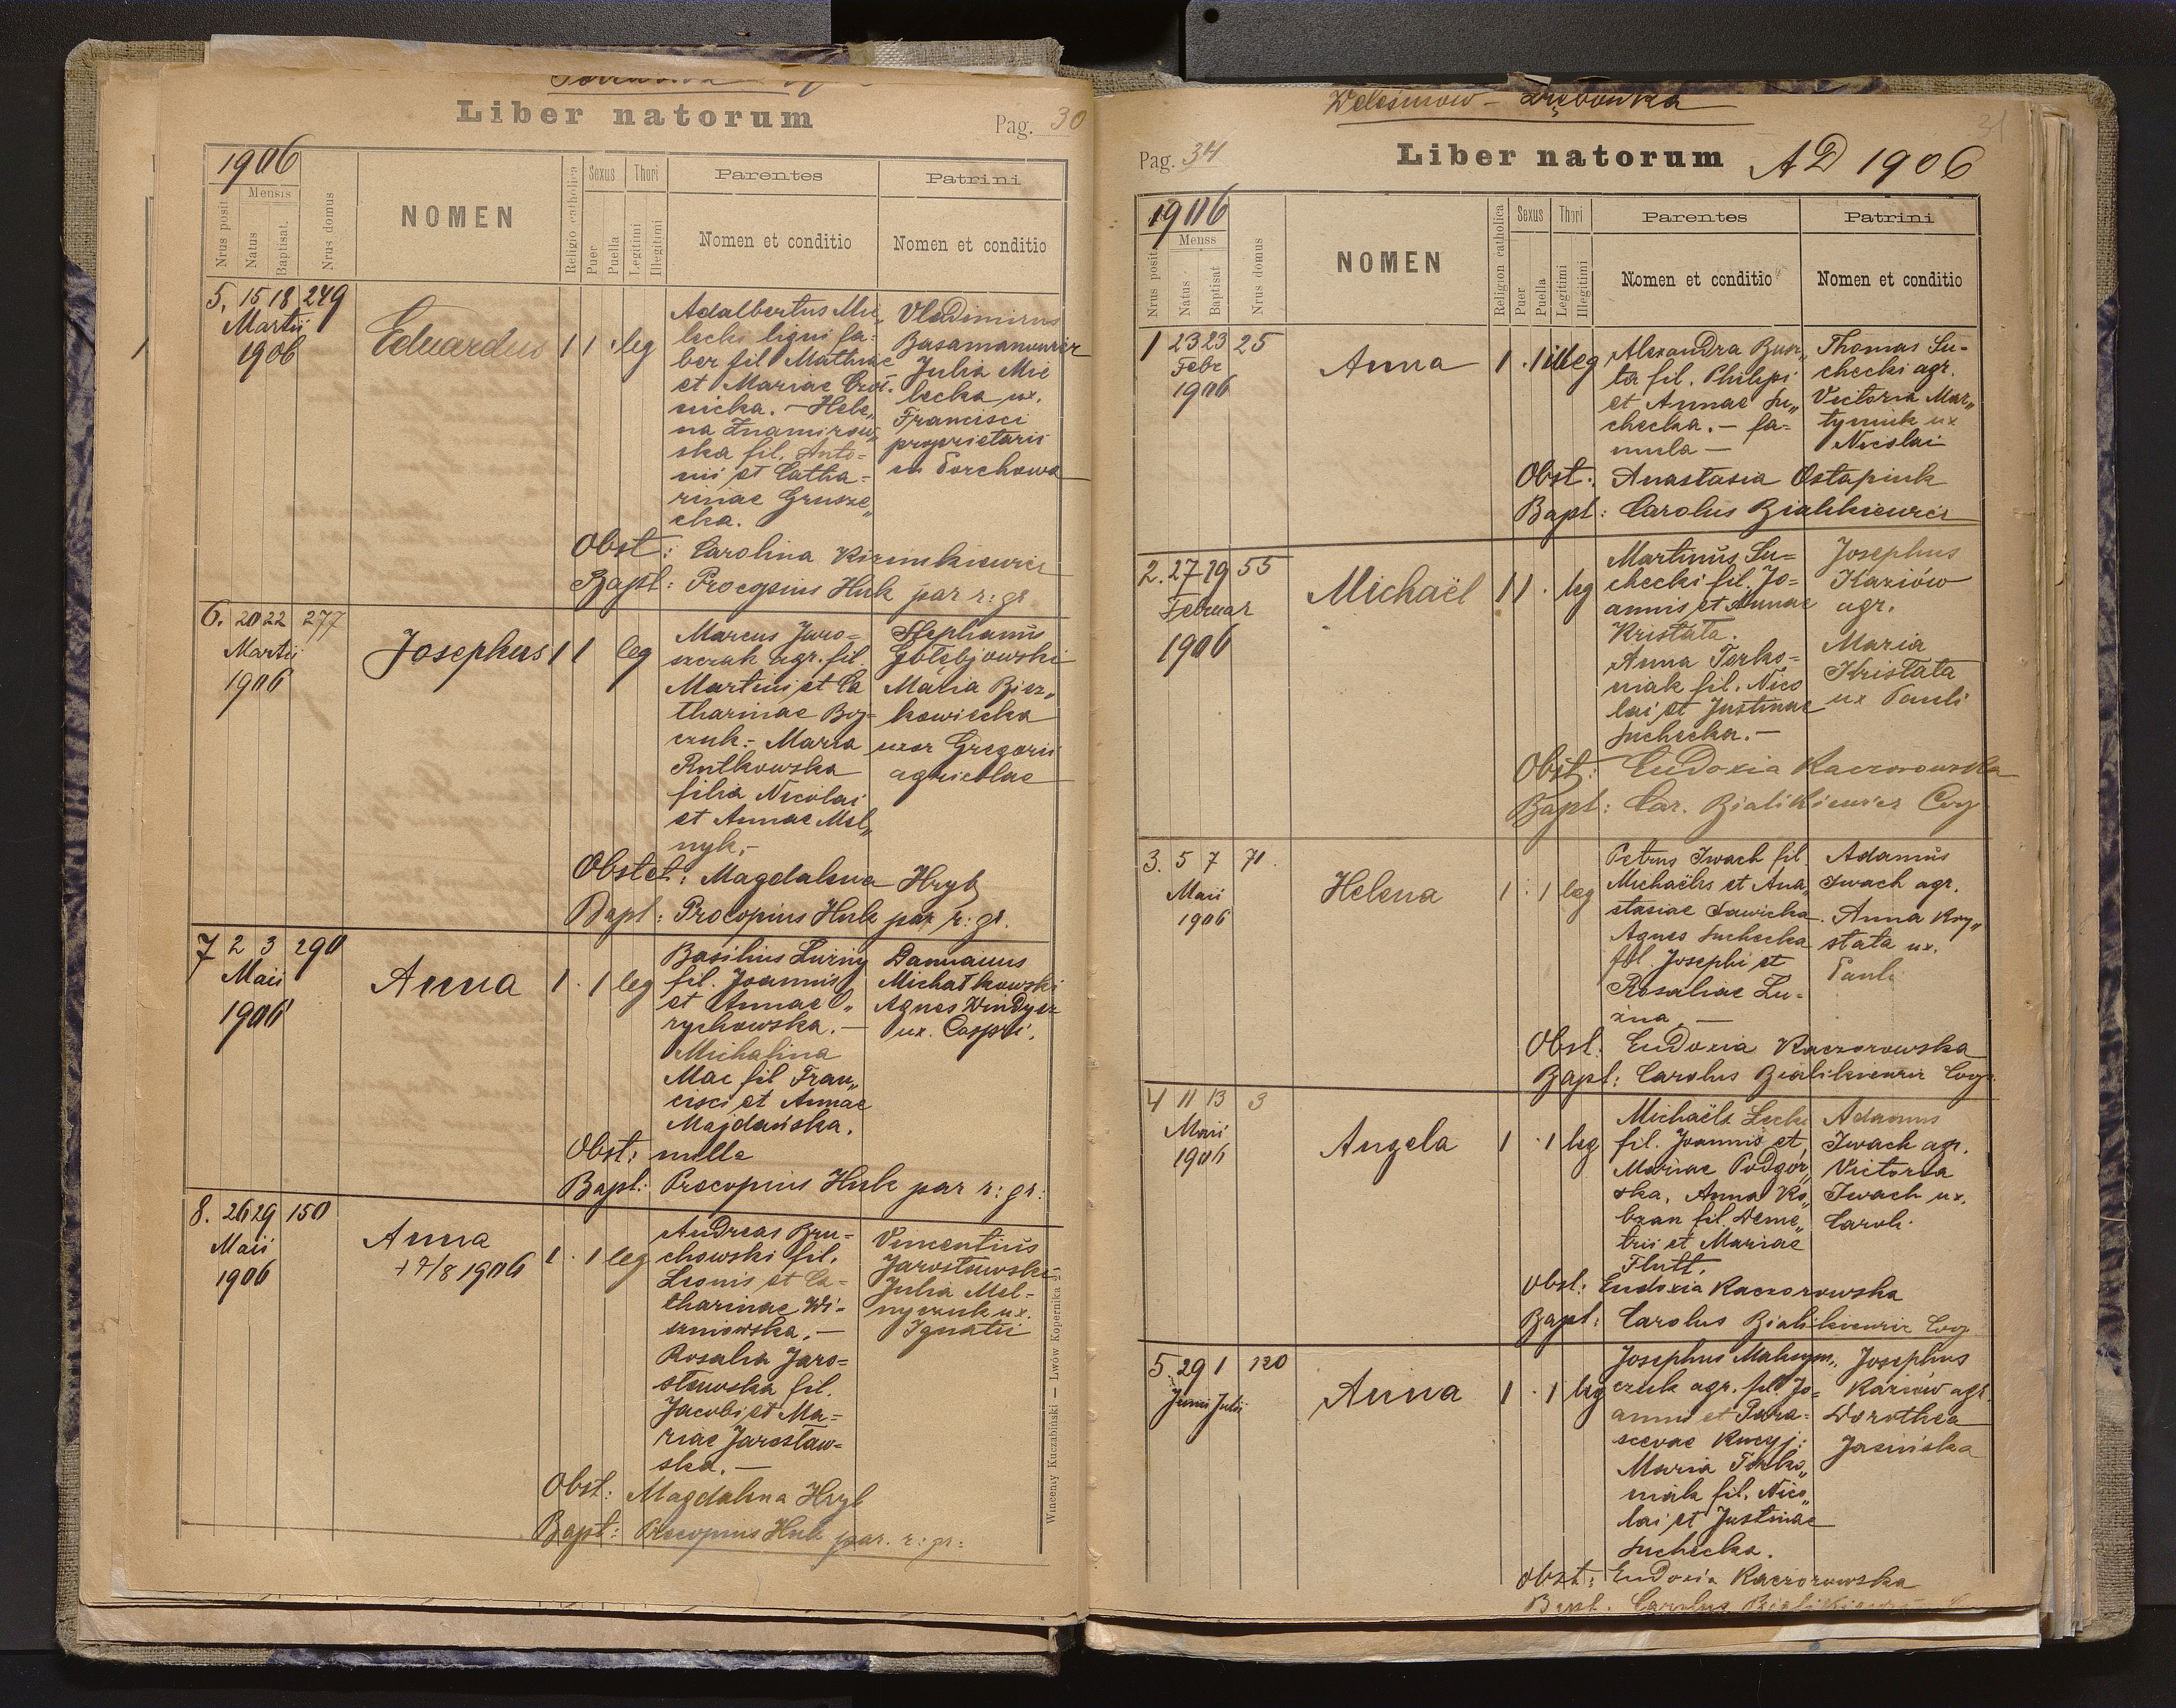 Liber natorum
Pag. 30
1906
Mensis
Nrus posit
Natus
Baptisat.
Nrus domus
NOMEN
Religio catholica
Sexus
Puer
Puella
Thori
Legitimi
Illegitimi
Parentes
Nomen et conditio
Patrini
Nomen et conditio
5. 15 18 249
Martii
1906
Eduardus
1 1 leg
Adalbertus Mie„
lecki ligni fa=
ber fil Mathiae
et Mariae
nicka. — Hele„
na Znamirow„
ska fil. Anto=
nii et Catha=
rinae Grusze„
cka.
Vladimirus
Julia Mie
lecka ux.
Francisci
proprietarii
in Torchowa
Obst: Carolina
Bapt: Procopius Huk par r: gr
6. 20 22 277
Martii
1906
Josephus
1 1 leg
Marcus Jaro=
szczak agr. fil.
Martini et Ca
tharinae Boj=
czuk. - Maria
Rutkowska
filia Nicolai
et Annae Mel„
nyk. -
Stephanus
Gołębjowski
Maria Bicz„
kowiecka
uxor Gregorii
agricolae
Obstet: Magdalena Hryb
Bapt: Procopius Huk par r. gr.
7 2 3 290
Maii
1906
Anna
1 . 1 leg
Basilius Luzny
fil. Joannis
et Annae O„
rychowska. —
Michalina
Mac fil Fran„
cisci et Annae
Majdańska.
Damianus
Michałkowski
Agnes Windysz
ux. Caspri.
Obst: nulla
Bapt: Procopius Huk par r: gr:
8. 26 29 150
Maii
1906
Anna
+ 7/8 1906
1 . 1 leg
Andreas Bru=
chowski fil.
Leonis et Ca=
tharinae Wi=
szniowska. —
Rosalia Jaro=
sławska fil.
Jacobi et Ma=
riae Jarosław=
ska. —
Vincentius
Jarosławski
Julia Mel=
nyczuk ux.
Ignatii
Obst: Magdalena Hryb
Bapt: Procopius Huk par. r: gr:
Wincenty Kuczabiński — Lwów Kopernika
Weleśniow - Dębowka
31
Pag. 34
Liber natorum AD 1906
1906
Menss
Nrus posit
Natus
Baptisat
Nrus domus
NOMEN
Religion catholica
Sexus
Puer
Puella
Thori
Legitimi
Illegitimi
Parentes
Nomen et conditio
Patrini
Nomen et conditio
1 23 23 25
Febr
1906
Anna
1 . 1 illeg
Alexandra Busz„
ta fil. Philipi
et Annae Su„
checka. — fa=
mula —
Thomas Su-
checki agr.
Victoria Mar„
tyniuk ux
Nicolai
Obst: Anastasia Ostapiuk
Bapt: Carolus Bialikiewicz
2. 27 29 55
Februar
1906
Michaël
1 1 . leg
Martinus Su=
checki fil. Jo=
annis et Annae
Kristata.
Anna Torko=
niak fil. Nico
lai et Justinae
Suchecka. —
Josephus
Kariów
agr.
Maria
Kristata
ux Pauli
Obst: Eudoxia Kaczorowska
Bapt: Car. Bialikiewicz Coop
3. 5 7 71.
Maii
1906
Helena
1 : 1 leg
Petrus Iwach fil.
Michaëlis et Ana„
stasiae Sawicka.
Agnes Suchecka
fil. Josephi et
Rosaliae Lu=
zna. —
Adamus
Iwach agr.
Anna Kry„
stata ux.
Pauli
Obst: Eudoxia Kaczorowska
Bapt: Carolus Bialikiewicz Coop.
4 11 13 3
Maii
1906
Angela
1 . 1 leg
Michaëls
fil. Joannis et
Mariae Podgór„
ska. Anna Ko„
bzan fil. Deme„
trii et Mariae
Flutt.
Adamus
Iwach agr.
Victoria
Iwach ux.
Caroli
Obst: Eudoxia Kaczorowska
Bapt: Carolus Bialikiewicz Coop
5. 29 1 120
Junii Julii
Anna
1 . 1 leg
Josephus Maksym„
czuk agr. fil. Jo=
annis et Para=
scevae
Maria Torko„
niak fil. Nico„
lai et Justinae
Suchecka.
Josephus
Kariów agr.
Dorothea
Jasińska
Obst: Eudoxia Kaczorowska
Bapt. Carolus Bialikiewicz